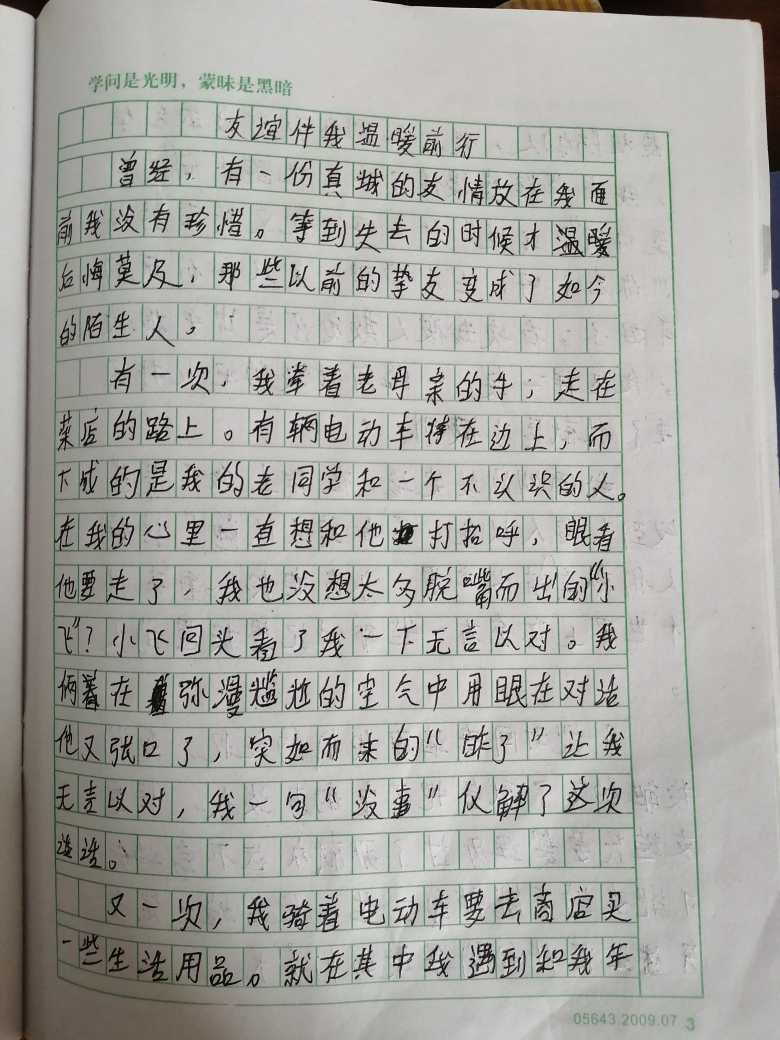 学问是光明，蒙昧是黑暗
友谊伴我温暖前行
曾经，有一份真城的友情放在我面
前我没有珍惜。等到失去的时候才温暖
后悔莫及，那些以前的挚友变成了如今
的陌生人。
有一次，我牵着老母亲的手，走在
菜店的路上。有辆电动车停在边上，而
下成的是我的老同学和一个不认识的人。
在我的心里一直想和他打招呼，眼看
他要走了，我也没想太多脱嘴而出的“小
飞”？小飞回头看了我一下无言以对。我
俩着在弥漫尴尬的空气中用眼在对话
他又张口了，突如而来的“咋了”让我
无言以对，我一句“没事”化解了这次
谈话。
又一次，我骑着电动车要去商店买
一些生活用品。就在其中我遇到和我年
05643.2009.07 3